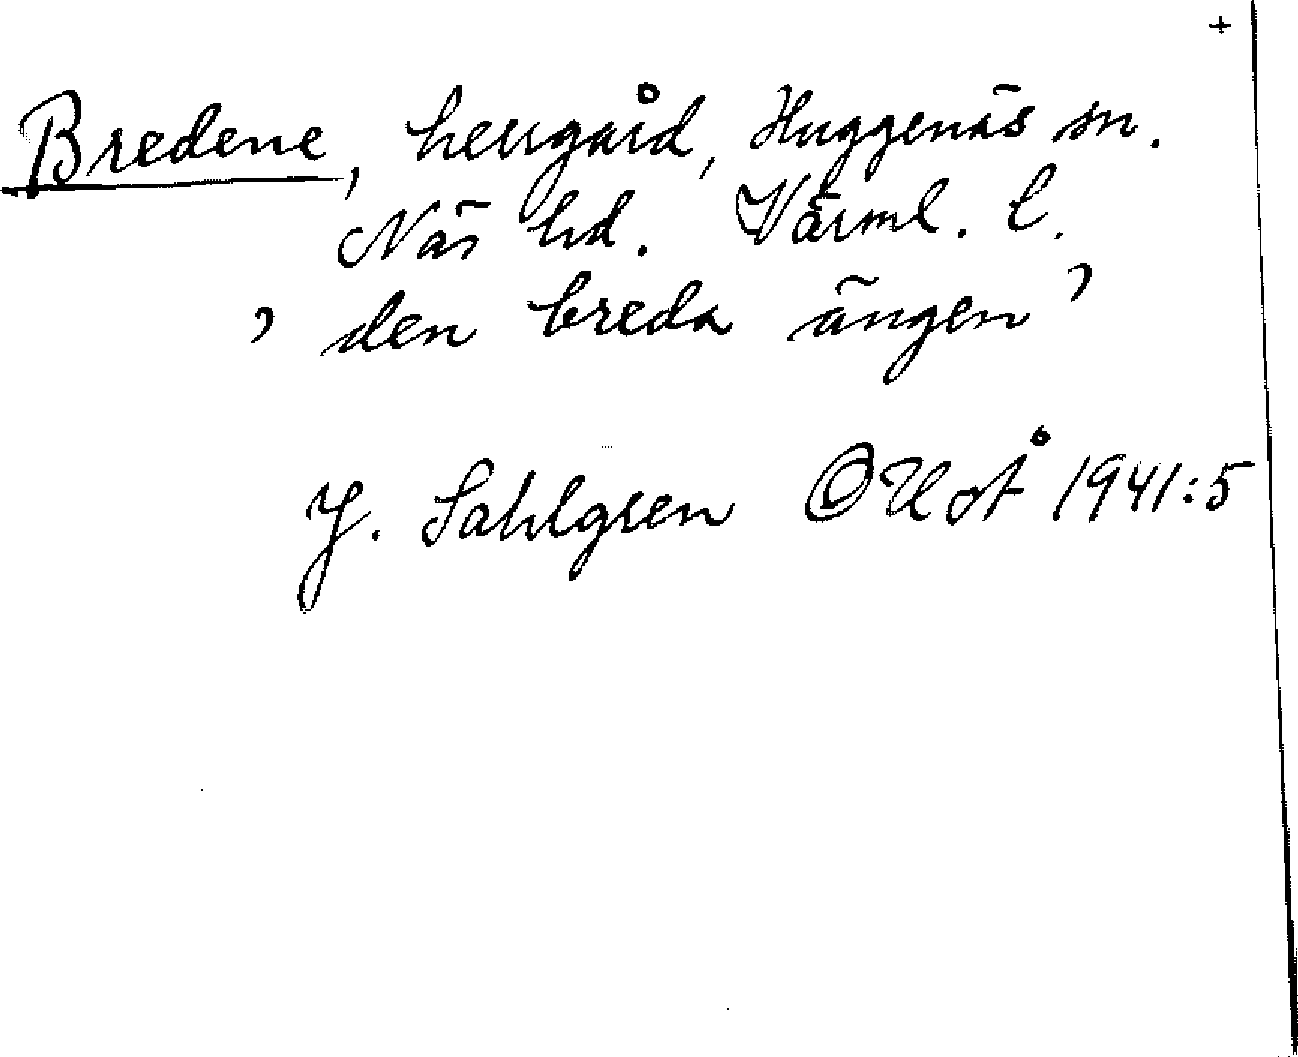 +
Bredene, herrgård, Huggenäs sn.
Näs hd. Värml. l.
' den breda ängen '
J. Sahlgren OUÅ 1941:5